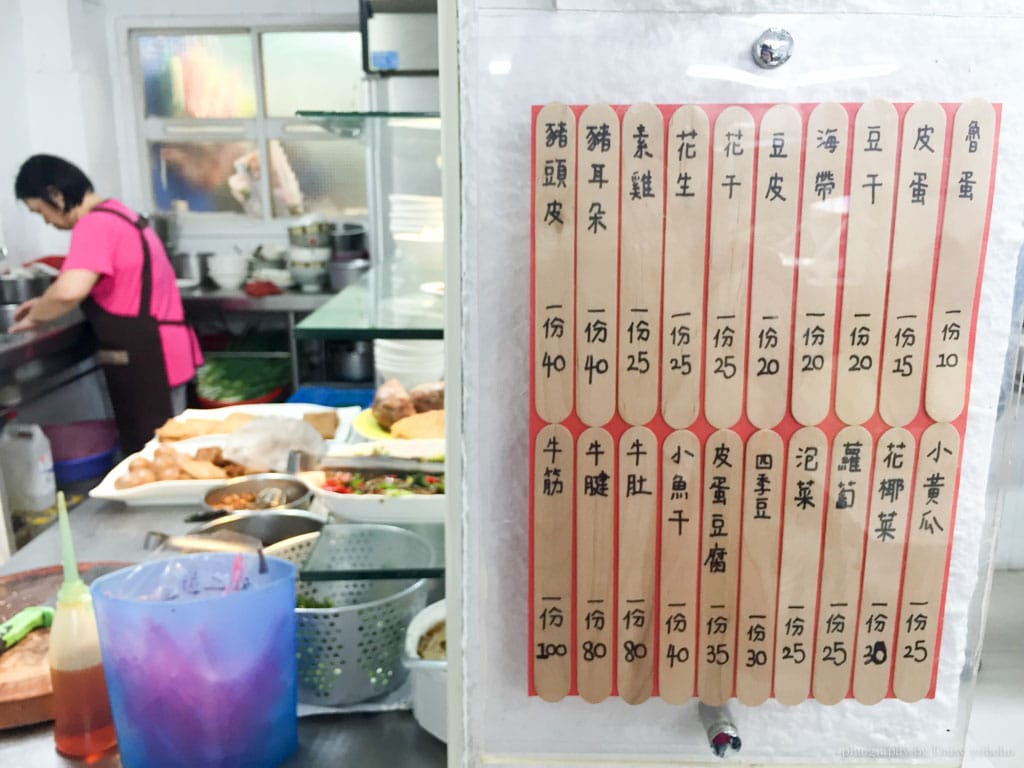 魯蛋 一份10
皮蛋 一份15
豆干 一份20
海帶 一份20
豆皮 一份20
花干 一份25
花生 一份25
素雞 一份25
豬耳朵 一份40
豬頭皮 一份40
小黃瓜 一份25
花椰菜 一份30
蘿蔔 一份25
泡菜 一份25
四季豆 一份30
皮蛋豆腐 一份35
小魚干 一份40
牛肚 一份80
牛腱 一份80
牛筋 一份100
photography by